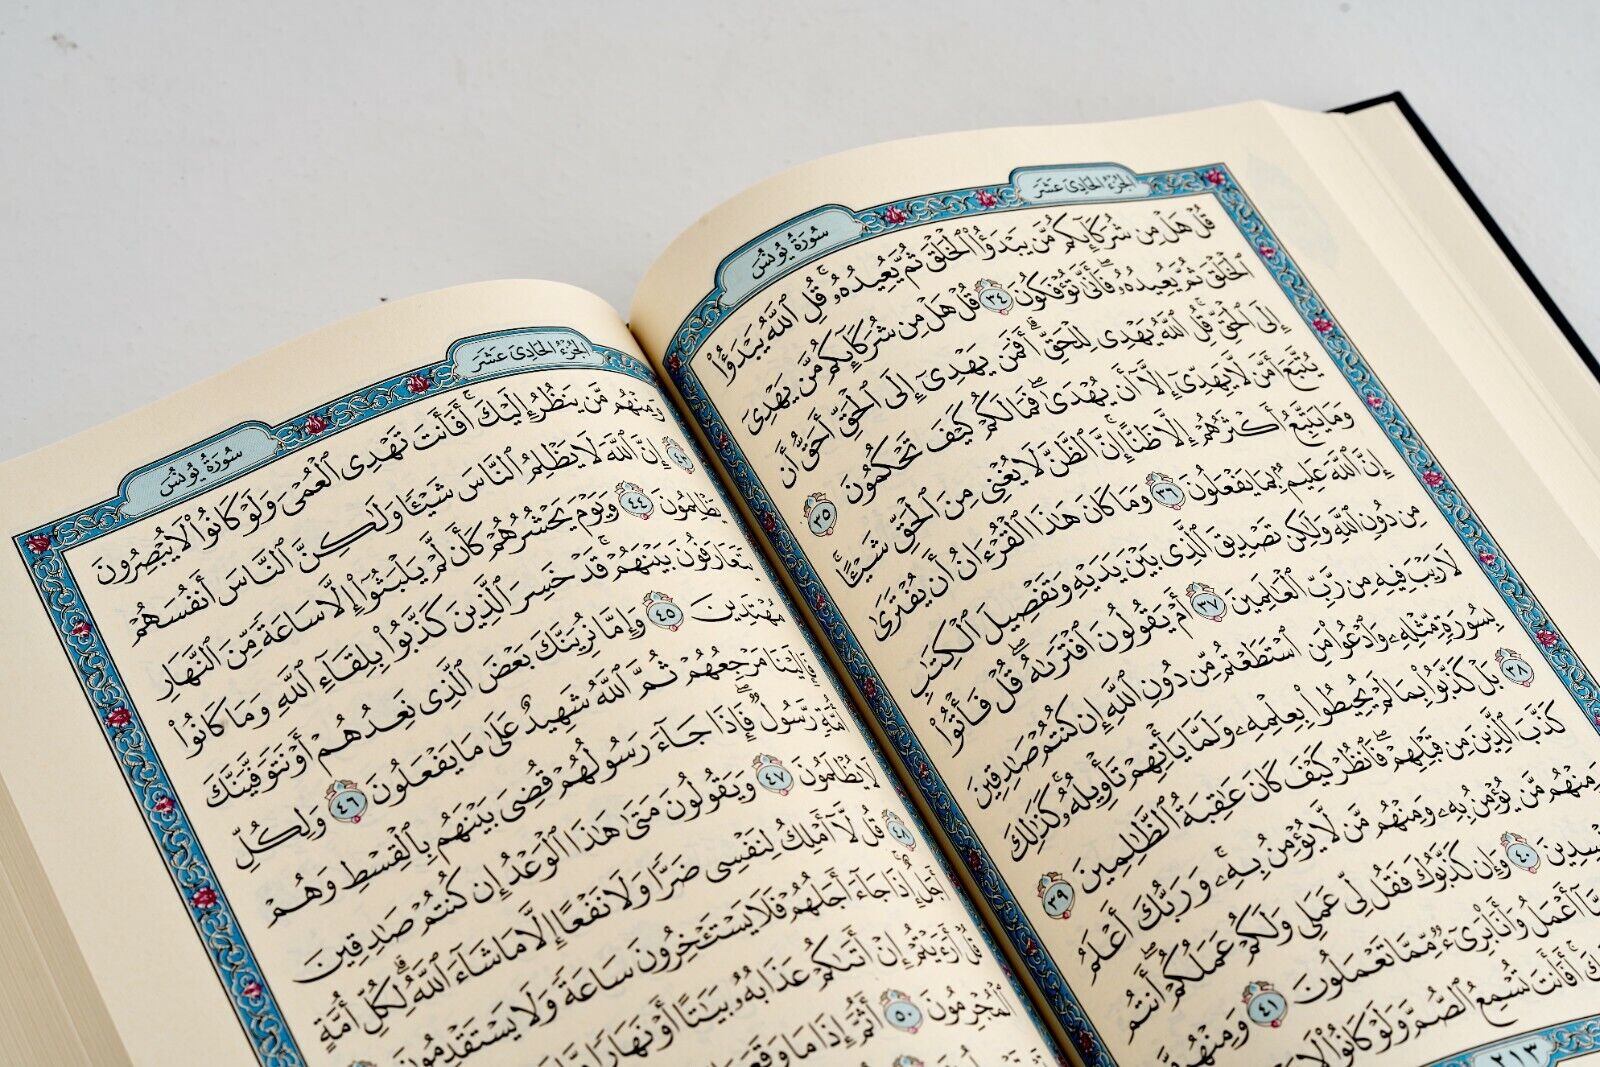 الجزء الحادى عشر
سورة يونس
قُلْ هَلْ مِن شُرَكَآئِكُم مَّن يَبْدَؤُا۟ ٱلْخَلْقَ ثُمَّ يُعِيدُهُۥ ۚ قُلِ ٱللَّهُ يَبْدَؤُا۟
ٱلْخَلْقَ ثُمَّ يُعِيدُهُۥ ۖ فَأَنَّىٰ تُؤْفَكُونَ ٣٤ قُلْ هَلْ مِن شُرَكَآئِكُم مَّن يَهْدِىٓ
إِلَى ٱلْحَقِّ ۚ قُلِ ٱللَّهُ يَهْدِى لِلْحَقِّ ۗ أَفَمَن يَهْدِىٓ إِلَى ٱلْحَقِّ أَحَقُّ أَن
يُتَّبَعَ أَمَّن لَّا يَهِدِّىٓ إِلَّآ أَن يُهْدَىٰ ۖ فَمَا لَكُمْ كَيْفَ تَحْكُمُونَ ٣٥
وَمَا يَتَّبِعُ أَكْثَرُهُمْ إِلَّا ظَنًّا ۚ إِنَّ ٱلظَّنَّ لَا يُغْنِى مِنَ ٱلْحَقِّ شَيْـًٔا ۚ
إِنَّ ٱللَّهَ عَلِيمٌۢ بِمَا يَفْعَلُونَ ٣٦ وَمَا كَانَ هَٰذَا ٱلْقُرْءَانُ أَن يُفْتَرَىٰ
مِن دُونِ ٱللَّهِ وَلَٰكِن تَصْدِيقَ ٱلَّذِى بَيْنَ يَدَيْهِ وَتَفْصِيلَ ٱلْكِتَٰبِ
لَا رَيْبَ فِيهِ مِن رَّبِّ ٱلْعَٰلَمِينَ ٣٧ أَمْ يَقُولُونَ ٱفْتَرَىٰهُ ۖ قُلْ فَأْتُوا۟
بِسُورَةٍ مِّثْلِهِۦ وَٱدْعُوا۟ مَنِ ٱسْتَطَعْتُم مِّن دُونِ ٱللَّهِ إِن كُنتُمْ صَٰدِقِينَ
٣٨ بَلْ كَذَّبُوا۟ بِمَا لَمْ يُحِيطُوا۟ بِعِلْمِهِۦ وَلَمَّا يَأْتِهِمْ تَأْوِيلُهُۥ ۚ كَذَٰلِكَ
كَذَّبَ ٱلَّذِينَ مِن قَبْلِهِمْ ۖ فَٱنظُرْ كَيْفَ كَانَ عَٰقِبَةُ ٱلظَّٰلِمِينَ ٣٩
وَمِنْهُم مَّن يُؤْمِنُ بِهِۦ وَمِنْهُم مَّن لَّا يُؤْمِنُ بِهِۦ ۚ وَرَبُّكَ أَعْلَمُ
٤٠ وَإِن كَذَّبُوكَ فَقُل لِّى عَمَلِى وَلَكُمْ عَمَلُكُمْ ۖ أَنتُم
أَعْمَلُ وَأَنَا۠ بَرِىٓءٌ مِّمَّا تَعْمَلُونَ ٤١ وَمِنْهُم
أَفَأَنتَ تُسْمِعُ ٱلصُّمَّ وَلَوْ كَانُوا۟ لَا
٢١٣
الجزء الحادى عشر
سورة يونس
وَمِنْهُم مَّن يَنظُرُ إِلَيْكَ ۚ أَفَأَنتَ تَهْدِى ٱلْعُمْىَ وَلَوْ كَانُوا۟ لَا يُبْصِرُونَ
إِنَّ ٱللَّهَ لَا يَظْلِمُ ٱلنَّاسَ شَيْـًٔا وَلَٰكِنَّ ٱلنَّاسَ أَنفُسَهُمْ
يَظْلِمُونَ ٤٤ وَيَوْمَ يَحْشُرُهُمْ كَأَن لَّمْ يَلْبَثُوٓا۟ إِلَّا سَاعَةً مِّنَ ٱلنَّهَارِ
يَتَعَارَفُونَ بَيْنَهُمْ ۚ قَدْ خَسِرَ ٱلَّذِينَ كَذَّبُوا۟ بِلِقَآءِ ٱللَّهِ وَمَا كَانُوا۟
مُهْتَدِينَ ٤٥ وَإِمَّا نُرِيَنَّكَ بَعْضَ ٱلَّذِى نَعِدُهُمْ أَوْ نَتَوَفَّيَنَّكَ
فَإِلَيْنَا مَرْجِعُهُمْ ثُمَّ ٱللَّهُ شَهِيدٌ عَلَىٰ مَا يَفْعَلُونَ ٤٦ وَلِكُلِّ
أُمَّةٍ رَّسُولٌ ۖ فَإِذَا جَآءَ رَسُولُهُمْ قُضِىَ بَيْنَهُم بِٱلْقِسْطِ وَهُمْ
لَا يُظْلَمُونَ ٤٧ وَيَقُولُونَ مَتَىٰ هَٰذَا ٱلْوَعْدُ إِن كُنتُمْ صَٰدِقِينَ
٤٨ قُل لَّآ أَمْلِكُ لِنَفْسِى ضَرًّا وَلَا نَفْعًا إِلَّا مَا شَآءَ ٱللَّهُ ۗ لِكُلِّ أُمَّةٍ
أَجَلٌ ۚ إِذَا جَآءَ أَجَلُهُمْ فَلَا يَسْتَـْٔخِرُونَ سَاعَةً ۖ وَلَا يَسْتَقْدِمُونَ
قُلْ أَرَءَيْتُمْ إِنْ أَتَىٰكُمْ عَذَابُهُۥ بَيَٰتًا أَوْ نَهَارًا
ٱلْمُجْرِمُونَ ٥٠ أَثُمَّ إِذَا مَا وَقَعَ